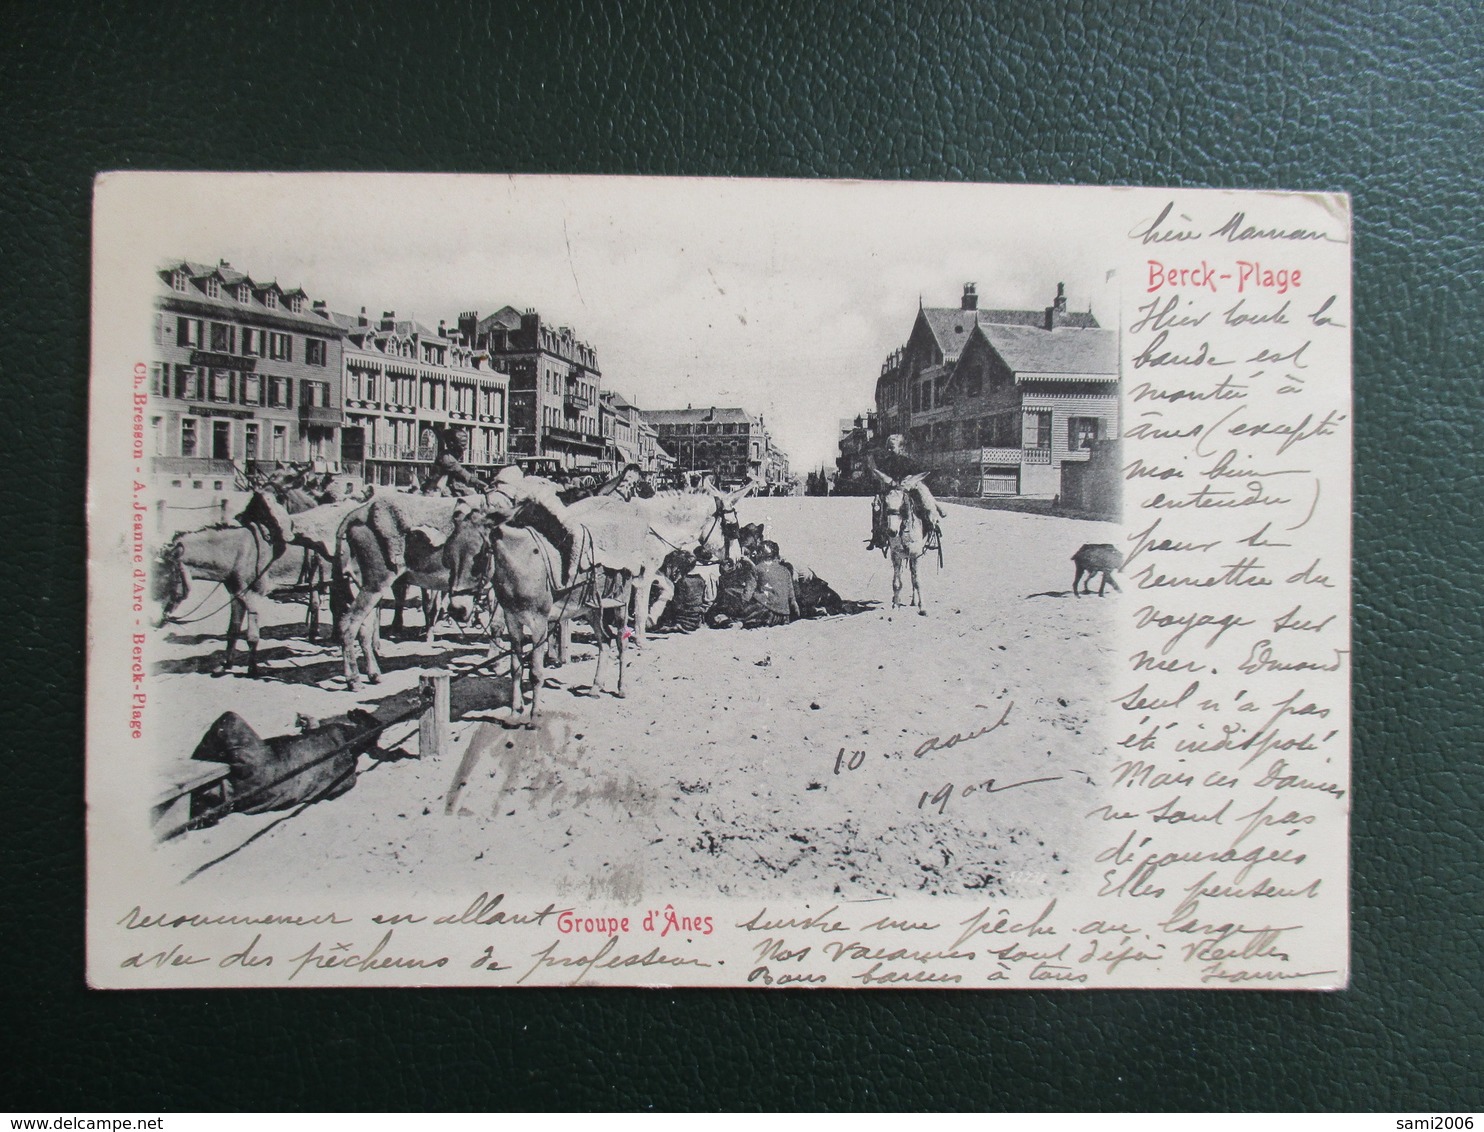 chère Maman
Berck-Plage
Hier toute la
bande est
montée à
ânes (excepté
moi bien
entendu)
pour se
remettre du
voyage sur
mer. Edmond
seul n'a pas
été indisposé
Mais ces Dames
ne sont pas
découragées
Elles pensent
recommencer en allant
avec des pêcheurs de profession.
suivre une pêche au large
Nos vacances sont déjà vieilles
Bons baisers à tous Jeanne
10 août
1902
Groupe d'Ânes
Ch. Bresson - A. Jeanne d'Arc - Berck-Plage
sami2006